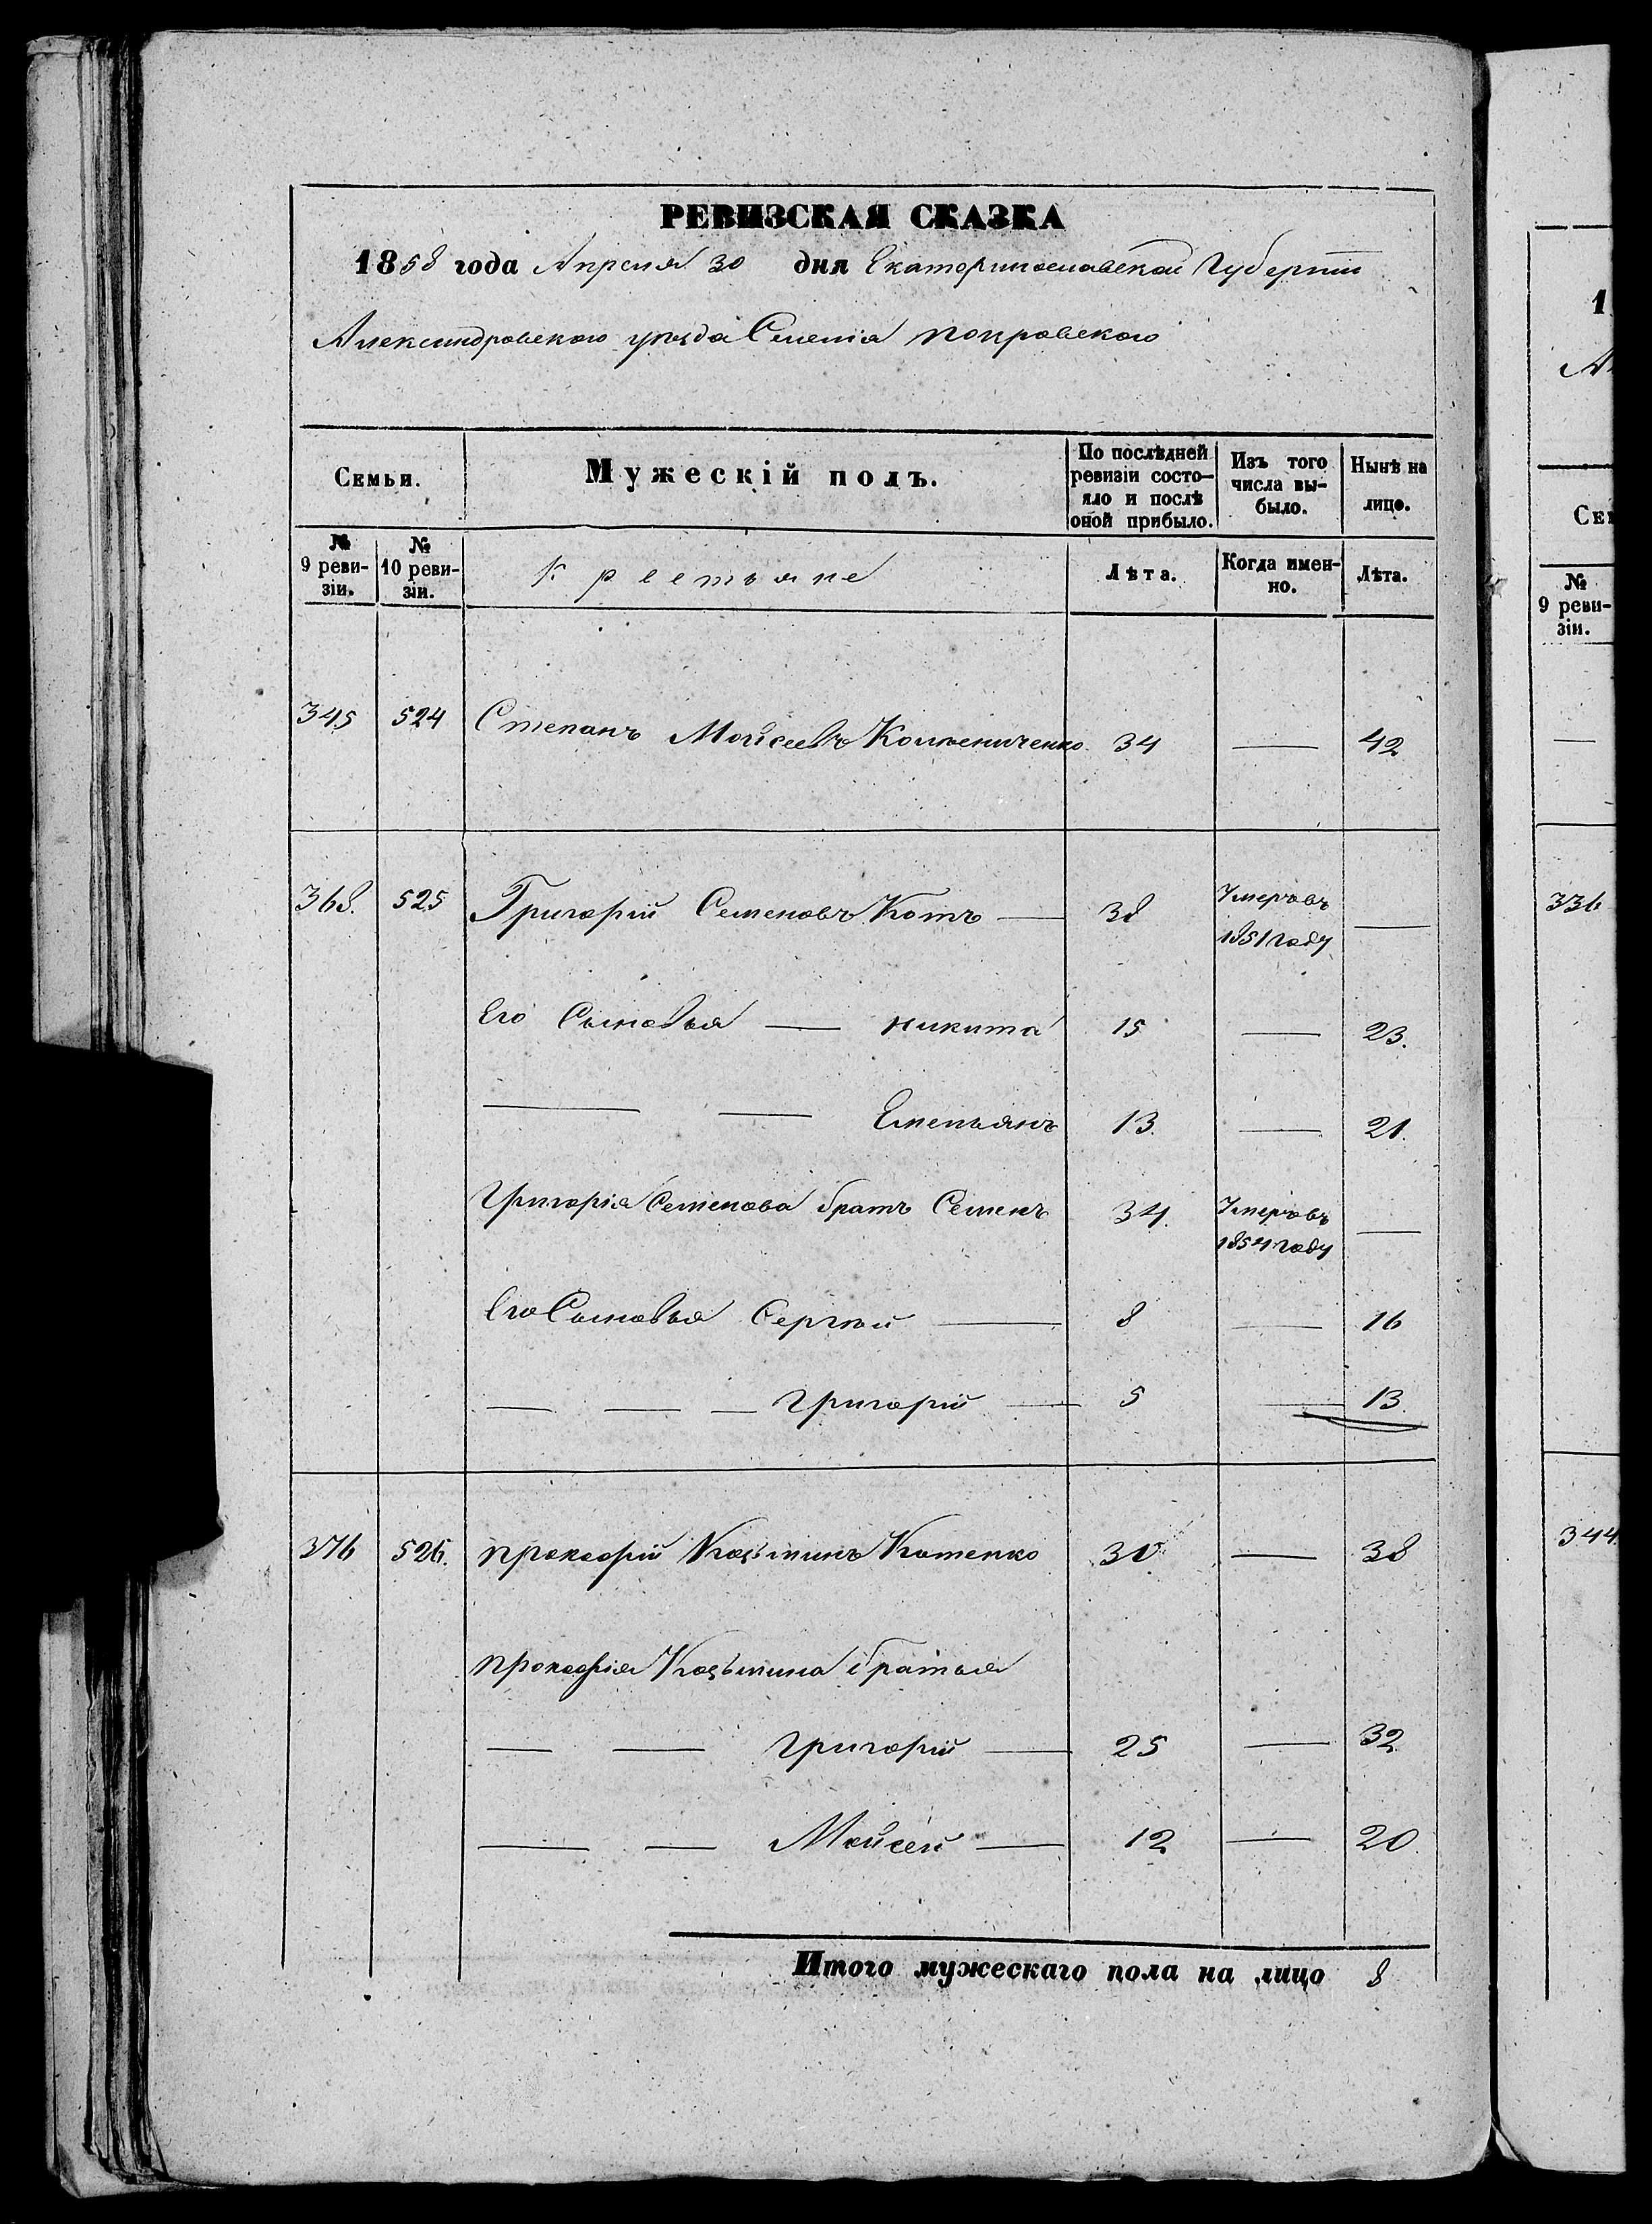 РЕВИЗСКАЯ СКАЗКА
1858 года Апреля 30 дня Екатеринославской Губернии
Александровского уѣзда Селенія покровского
Семьи.
Мужескій полъ.
По послѣдней ревизіи состояло и послѣ оной прибыло.
Изъ того числа выбыло.
Нынѣ на лицо.
№ 9 ревизіи.
№ 10 ревизіи.
Крестьяне
Лѣта.
Когда именно.
Лѣта.
345 524 Степанъ Мойсеевъ 34 — 42
368. 525 Григорій Семеновъ Котъ — 38 Умеръ въ 1851 году —
Его Сыновья — никита 15 — 23.
— — Емельянъ 13. — 21.
Григорія Семенова братъ Семенъ 34. Умеръ въ 1854 году —
Его Сыновья Сергѣй — 8 — 16
— — — Григорій — 5 — 13.
376 526. прокофій Козьминъ Котенко 30 — 38
прокофія Козьмина братья
— — Григорій — 25 — 32
— — Мойсей — 12 — 20.
Итого мужескаго пола на лицо 8
1
№ 9 ревизіи.
336
344